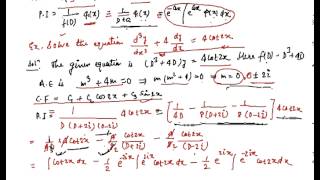 P.I = 1/f(D) φ(x) = 1/(D+a) φ(x) = e^{-ax} ∫ e^{ax} φ(x) dx
Ex. Solve the equation d³y/dx³ + 4 dy/dx = 4 cot2x
Solⁿ The given equation is (D³+4D)y = 4cot2x Here f(D) = D³+4D
A.E is m³+4m=0 ⇒ m(m²+4)=0 ⇒ m=0, ±2i
C.F = C₁ + C₂ cos2x + C₃ sin2x
P.I = 1/(D(D+2i)(D-2i)) 4cot2x = [1/4D - 1/8(D+2i) - 1/8(D-2i)] 4cot2x
cot2x cot2x
= ∫cot2x dx - 1/2 e^{-2ix} ∫ e^{2ix} cot2x dx - 1/2 e^{2ix} ∫ e^{-2ix} cot2x dx